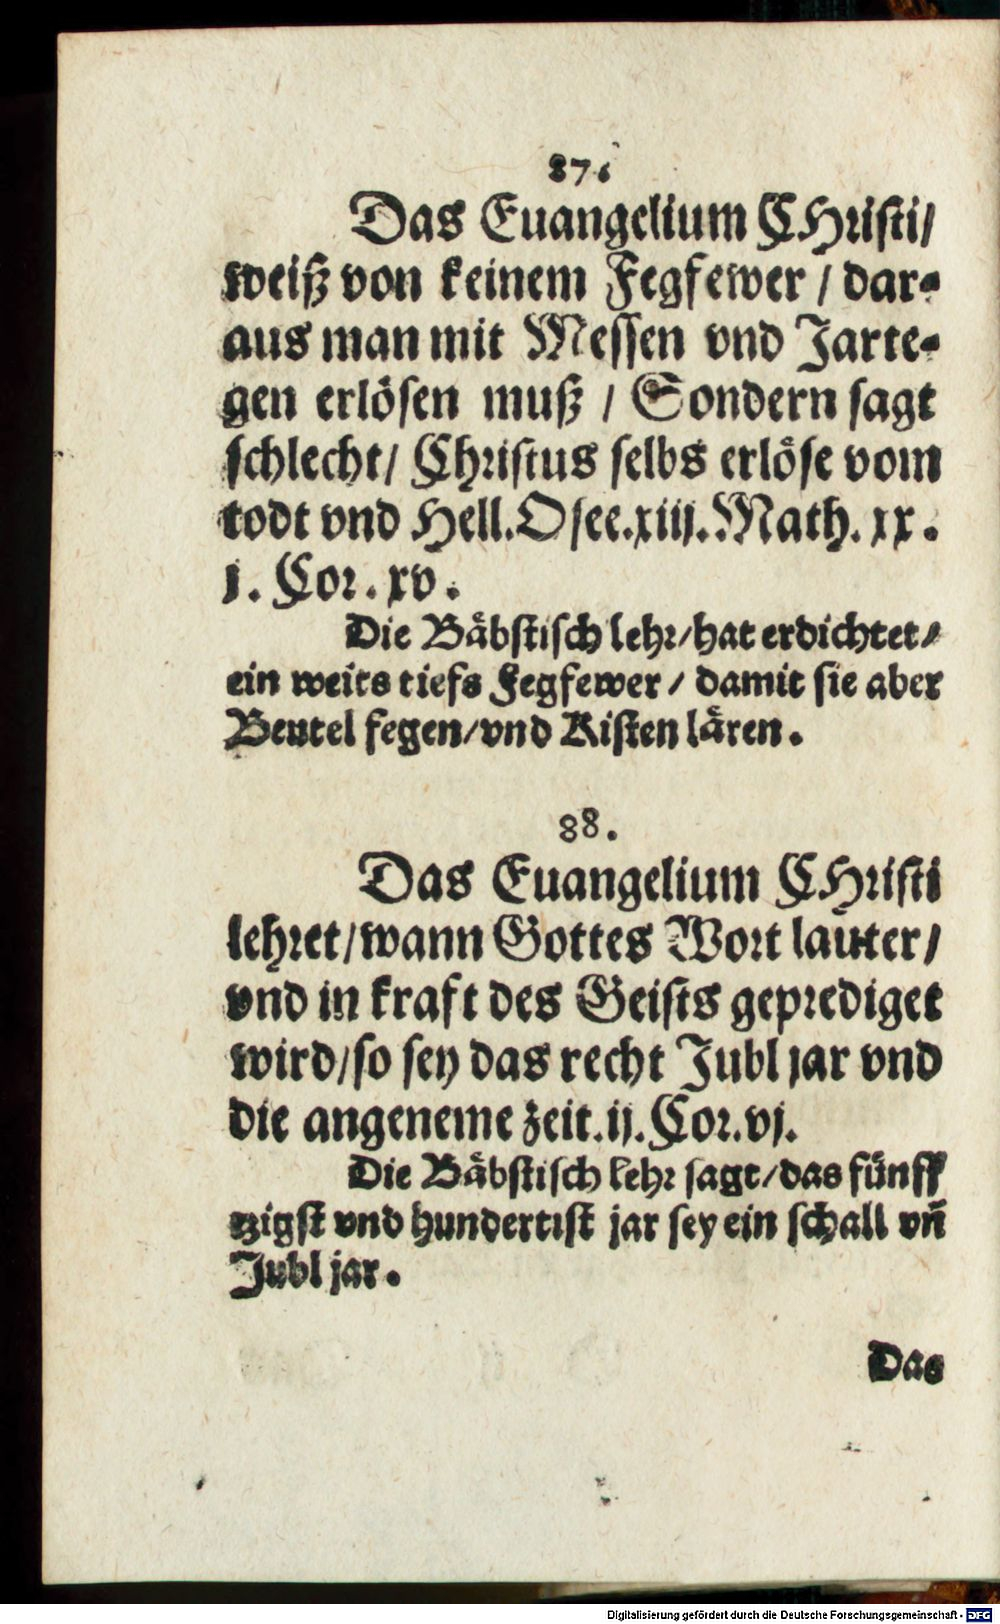 87.
Das Euangelium CHristi/
weiß von keinem Fegfewer / dar-
aus man mit Messen vnd Jarte-
gen erlösen muß / Sondern sagt
schlecht/ Christus selbs erlöse vom
todt vnd Hell. Osee. xiij. Math. xx.
j. Cor. xv.
Die Bäbstisch lehr/hat erdichtet/
ein weits tiefs Fegfewer / damit sie aber
Beutel fegen/vnd Kisten lären.
88.
Das Euangelium CHristi
lehret/wann Gottes Wort lauter/
vnd in kraft des Geists geprediget
wird/so sey das recht Jubl jar vnd
die angeneme zeit. ij. Cor. vj.
Die Bäbstisch lehr sagt/das fünff
tzigst vnd hundertist jar sey ein schall vn̄
Jubl jar.
Das
Digitalisierung gefördert durch die Deutsche Forschungsgemeinschaft - DFG